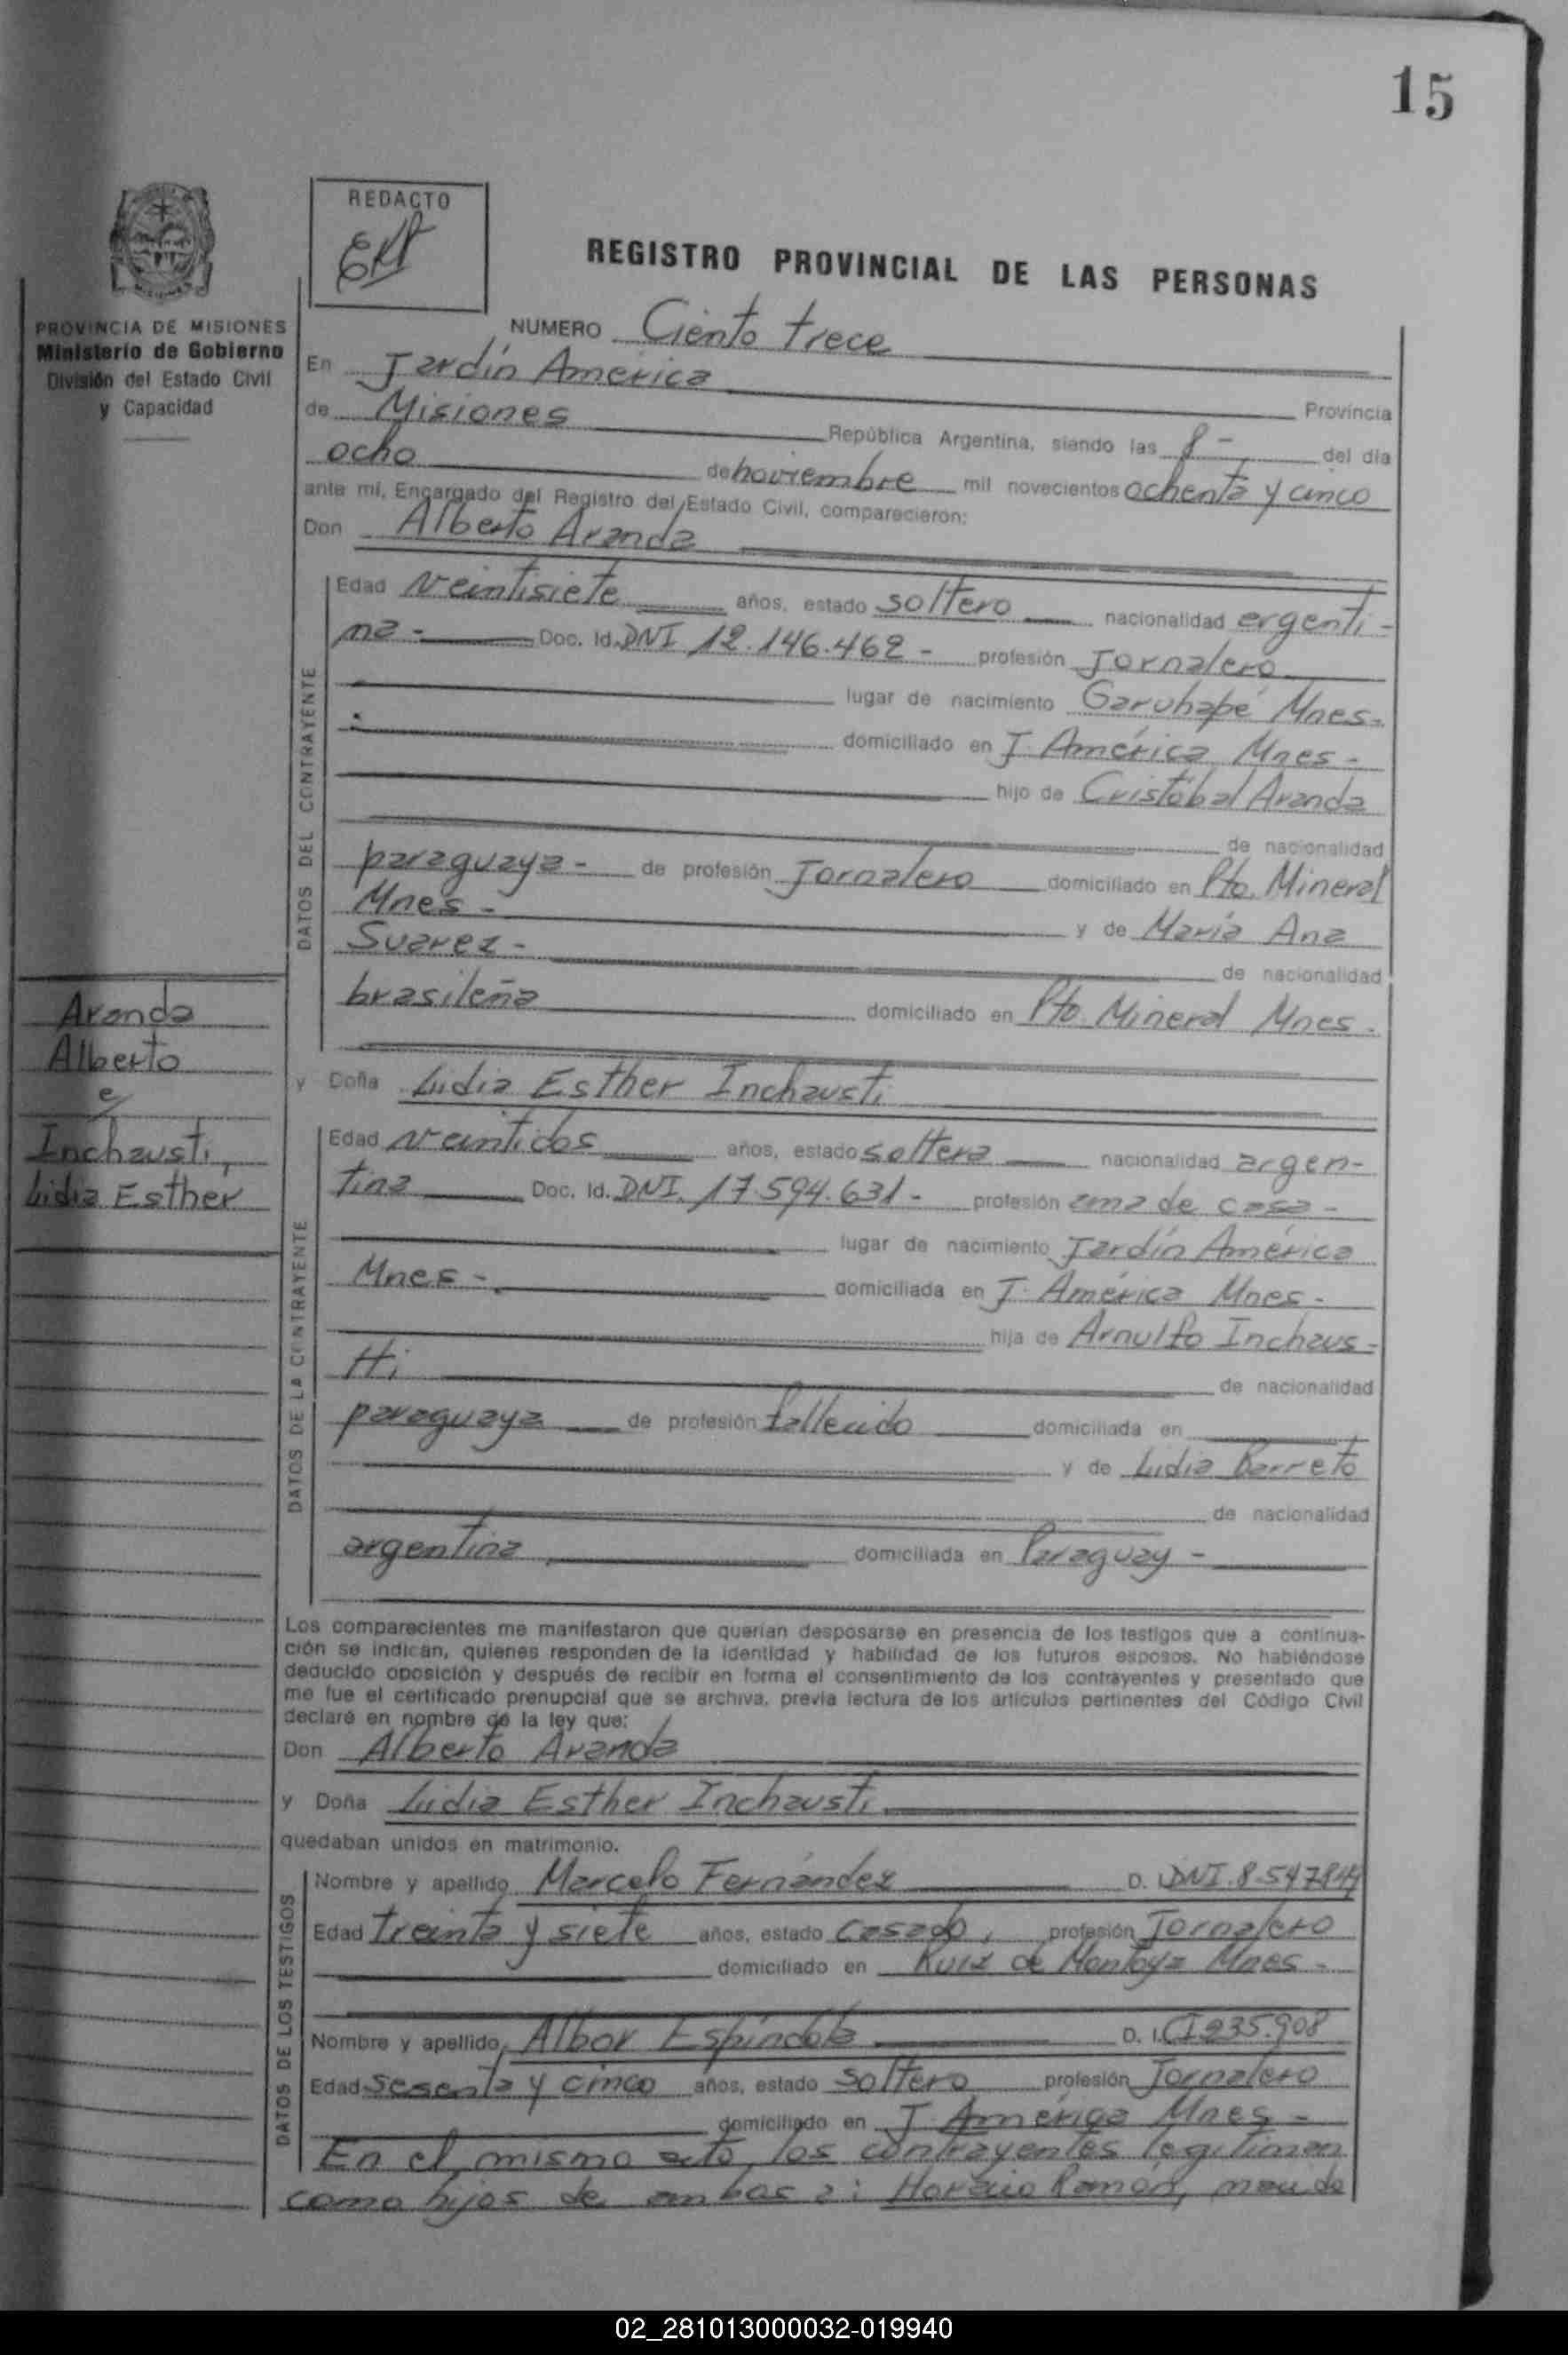 15
REDACTO
REGISTRO PROVINCIAL DE LAS PERSONAS
PROVINCIA DE MISIONES
Ministerio de Gobierno
División del Estado Civil
y Capacidad
NUMERO Ciento trece
En Jardín América
Provincia
de Misiones República Argentina, siendo las 8- del día
ocho de noviembre mil novecientos ochenta y cinco
ante mí, Encargado del Registro del Estado Civil, comparecieron:
Don Alberto Aranda
DATOS DEL CONTRAYENTE
Edad veintisiete años, estado soltero nacionalidad argenti-
na- Doc. Id. DNI 12.146.462- profesión Jornalero
lugar de nacimiento Garuhapé Mnes-
domiciliado en J. América Mnes-
hijo de Cristóbal Aranda
de nacionalidad
paraguaya- de profesión Jornalero domiciliado en Pto. Mineral
Mnes- y de María Ana
Suarez- de nacionalidad
brasileña domiciliado en Pto. Mineral Mnes-
Aranda
Alberto
e/
Inchausti,
Lidia Esther
y Doña Lidia Esther Inchausti
DATOS DE LA CONTRAYENTE
Edad veintidos años, estado soltera nacionalidad argen-
tina Doc. Id. DNI. 17.594.631- profesión ama de casa-
lugar de nacimiento Jardín América
Mnes- domiciliada en J. América Mnes-
hija de Arnulfo Inchaus-
ti de nacionalidad
paraguaya de profesión fallecido domiciliada en
y de Lidia Barreto
de nacionalidad
argentina domiciliada en Paraguay-
Los comparecientes me manifestaron que querían desposarse en presencia de los testigos que a continua-
ción se indican, quienes responden de la identidad y habilidad de los futuros esposos. No habiéndose
deducido oposición y después de recibir en forma el consentimiento de los contrayentes y presentado que
me fue el certificado prenupcial que se archiva, previa lectura de los artículos pertinentes del Código Civil
declaré en nombre de la ley que:
Don Alberto Aranda
y Doña Lidia Esther Inchausti
quedaban unidos en matrimonio.
DATOS DE LOS TESTIGOS
Nombre y apellido Marcelo Fernández D. I. DNI.
Edad treinta y siete años, estado casado, profesión Jornalero
domiciliado en Ruiz de Montoya Mnes-
Nombre y apellido Albor Espíndola D. I. CI 235.908
Edad sesenta y cinco años, estado soltero profesión Jornalero
domiciliado en J. América Mnes-
En el mismo acto, los contrayentes legitiman
como hijos de ambos a: Horacio Ramón, naci do
02_281013000032-019940